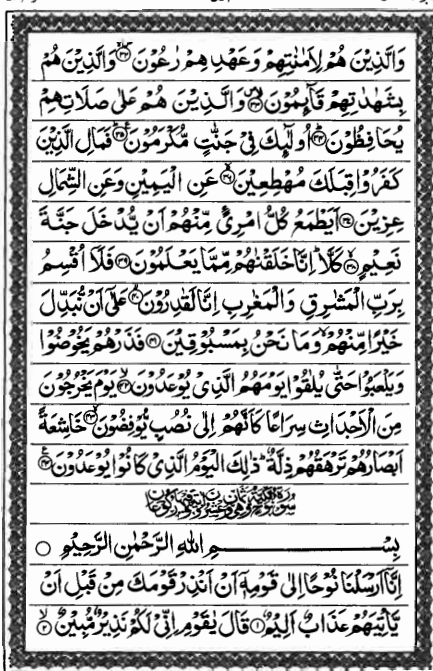 وَالَّذِيْنَ هُمْ لِاَمٰنٰتِهِمْ وَعَهْدِهِمْ رٰعُوْنَ ﴿٣٢﴾ وَالَّذِيْنَ هُمْ
بِشَهٰدٰتِهِمْ قَآئِمُوْنَ ﴿٣٣﴾ وَالَّذِيْنَ هُمْ عَلٰى صَلَاتِهِمْ
يُحَافِظُوْنَ ﴿٣٤﴾ اُولٰٓئِكَ فِيْ جَنّٰتٍ مُّكْرَمُوْنَ ﴿٣٥﴾ فَمَالِ الَّذِيْنَ
كَفَرُوْا قِبَلَكَ مُهْطِعِيْنَ ﴿٣٦﴾ عَنِ الْيَمِيْنِ وَعَنِ الشِّمَالِ
عِزِيْنَ ﴿٣٧﴾ اَيَطْمَعُ كُلُّ امْرِئٍ مِّنْهُمْ اَنْ يُّدْخَلَ جَنَّةَ
نَعِيْمٍ ﴿٣٨﴾ كَلَّا ۗ اِنَّا خَلَقْنٰهُمْ مِّمَّا يَعْلَمُوْنَ ﴿٣٩﴾ فَلَآ اُقْسِمُ
بِرَبِّ الْمَشٰرِقِ وَالْمَغٰرِبِ اِنَّا لَقٰدِرُوْنَ ﴿٤٠﴾ عَلٰٓى اَنْ نُّبَدِّلَ
خَيْرًا مِّنْهُمْ ۙ وَمَا نَحْنُ بِمَسْبُوْقِيْنَ ﴿٤١﴾ فَذَرْهُمْ يَخُوْضُوْا
وَيَلْعَبُوْا حَتّٰى يُلٰقُوْا يَوْمَهُمُ الَّذِيْ يُوْعَدُوْنَ ﴿٤٢﴾ يَوْمَ يَخْرُجُوْنَ
مِنَ الْاَجْدَاثِ سِرَاعًا كَاَنَّهُمْ اِلٰى نُصُبٍ يُّوْفِضُوْنَ ﴿٤٣﴾ خَاشِعَةً
اَبْصَارُهُمْ تَرْهَقُهُمْ ذِلَّةٌ ۗ ذٰلِكَ الْيَوْمُ الَّذِيْ كَانُوْا يُوْعَدُوْنَ ﴿٤٤﴾
بِسْمِ اللّٰهِ الرَّحْمٰنِ الرَّحِيْمِ
اِنَّآ اَرْسَلْنَا نُوْحًا اِلٰى قَوْمِهٖٓ اَنْ اَنْذِرْ قَوْمَكَ مِنْ قَبْلِ اَنْ
يَّاْتِيَهُمْ عَذَابٌ اَلِيْمٌ ﴿١﴾ قَالَ يٰقَوْمِ اِنِّيْ لَكُمْ نَذِيْرٌ مُّبِيْنٌ ﴿٢﴾